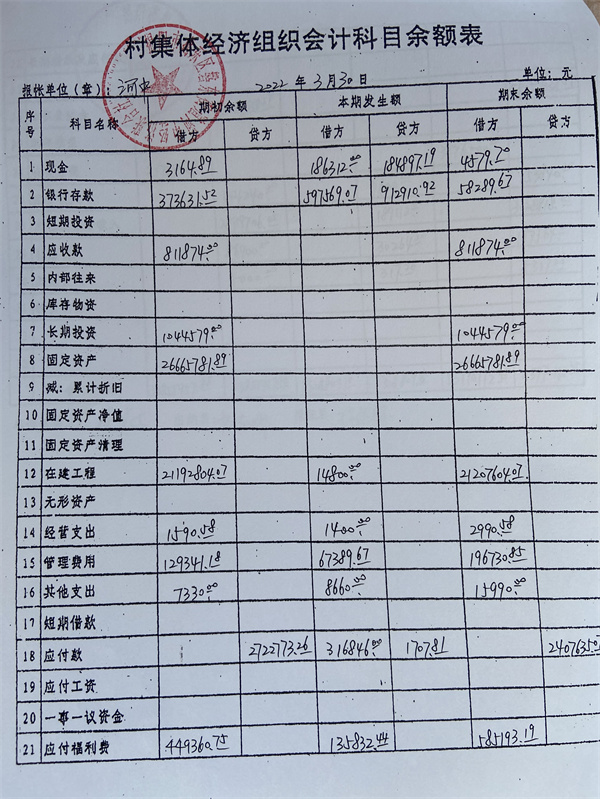 村集体经济组织会计科目余额表
报账单位(章): 河中 2022年3月30日 单位: 元
序号 科目名称 期初余额 本期发生额 期末余额
借方 贷方 借方 贷方 借方 贷方
1 现金 3164.89 186312.00 184897.19 4579.70
2 银行存款 373631.52 597569.07 912910.92 58289.67
3 短期投资
4 应收款 811874.00 811874.00
5 内部往来
6 库存物资
7 长期投资 1044579.00 1044579.00
8 固定资产 26665781.89 26665781.89
9 减: 累计折旧
10 固定资产净值
11 固定资产清理
12 在建工程 21192804.07 14800.00 21207604.07
13 无形资产
14 经营支出 1590.58 1400.00 2990.58
15 管理费用 129341.18 67389.67 196730.85
16 其他支出 7330.00 8660.00 15990.00
17 短期借款
18 应付款 2722773.26 316846.00 1707.81 2407635.07
19 应付工资
20 一事一议资金
21 应付福利费 449360.75 135832.44 585193.19